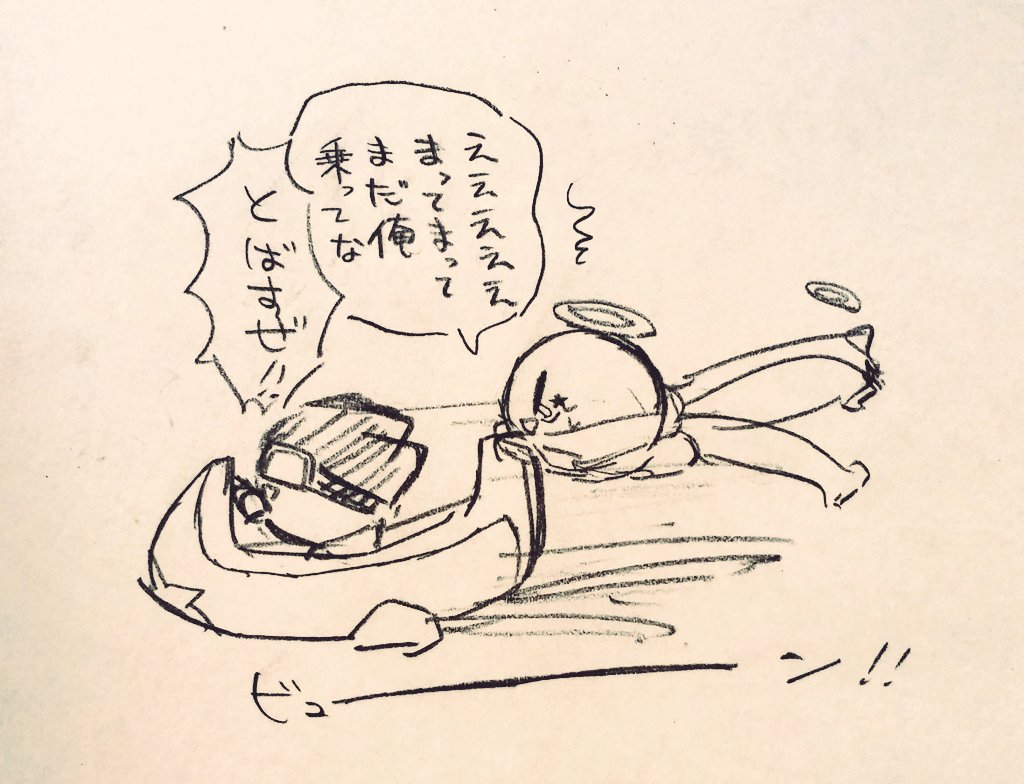 えええええ
まってまって
まだ俺
乗ってな
とばすぜ!!
ビューン!!